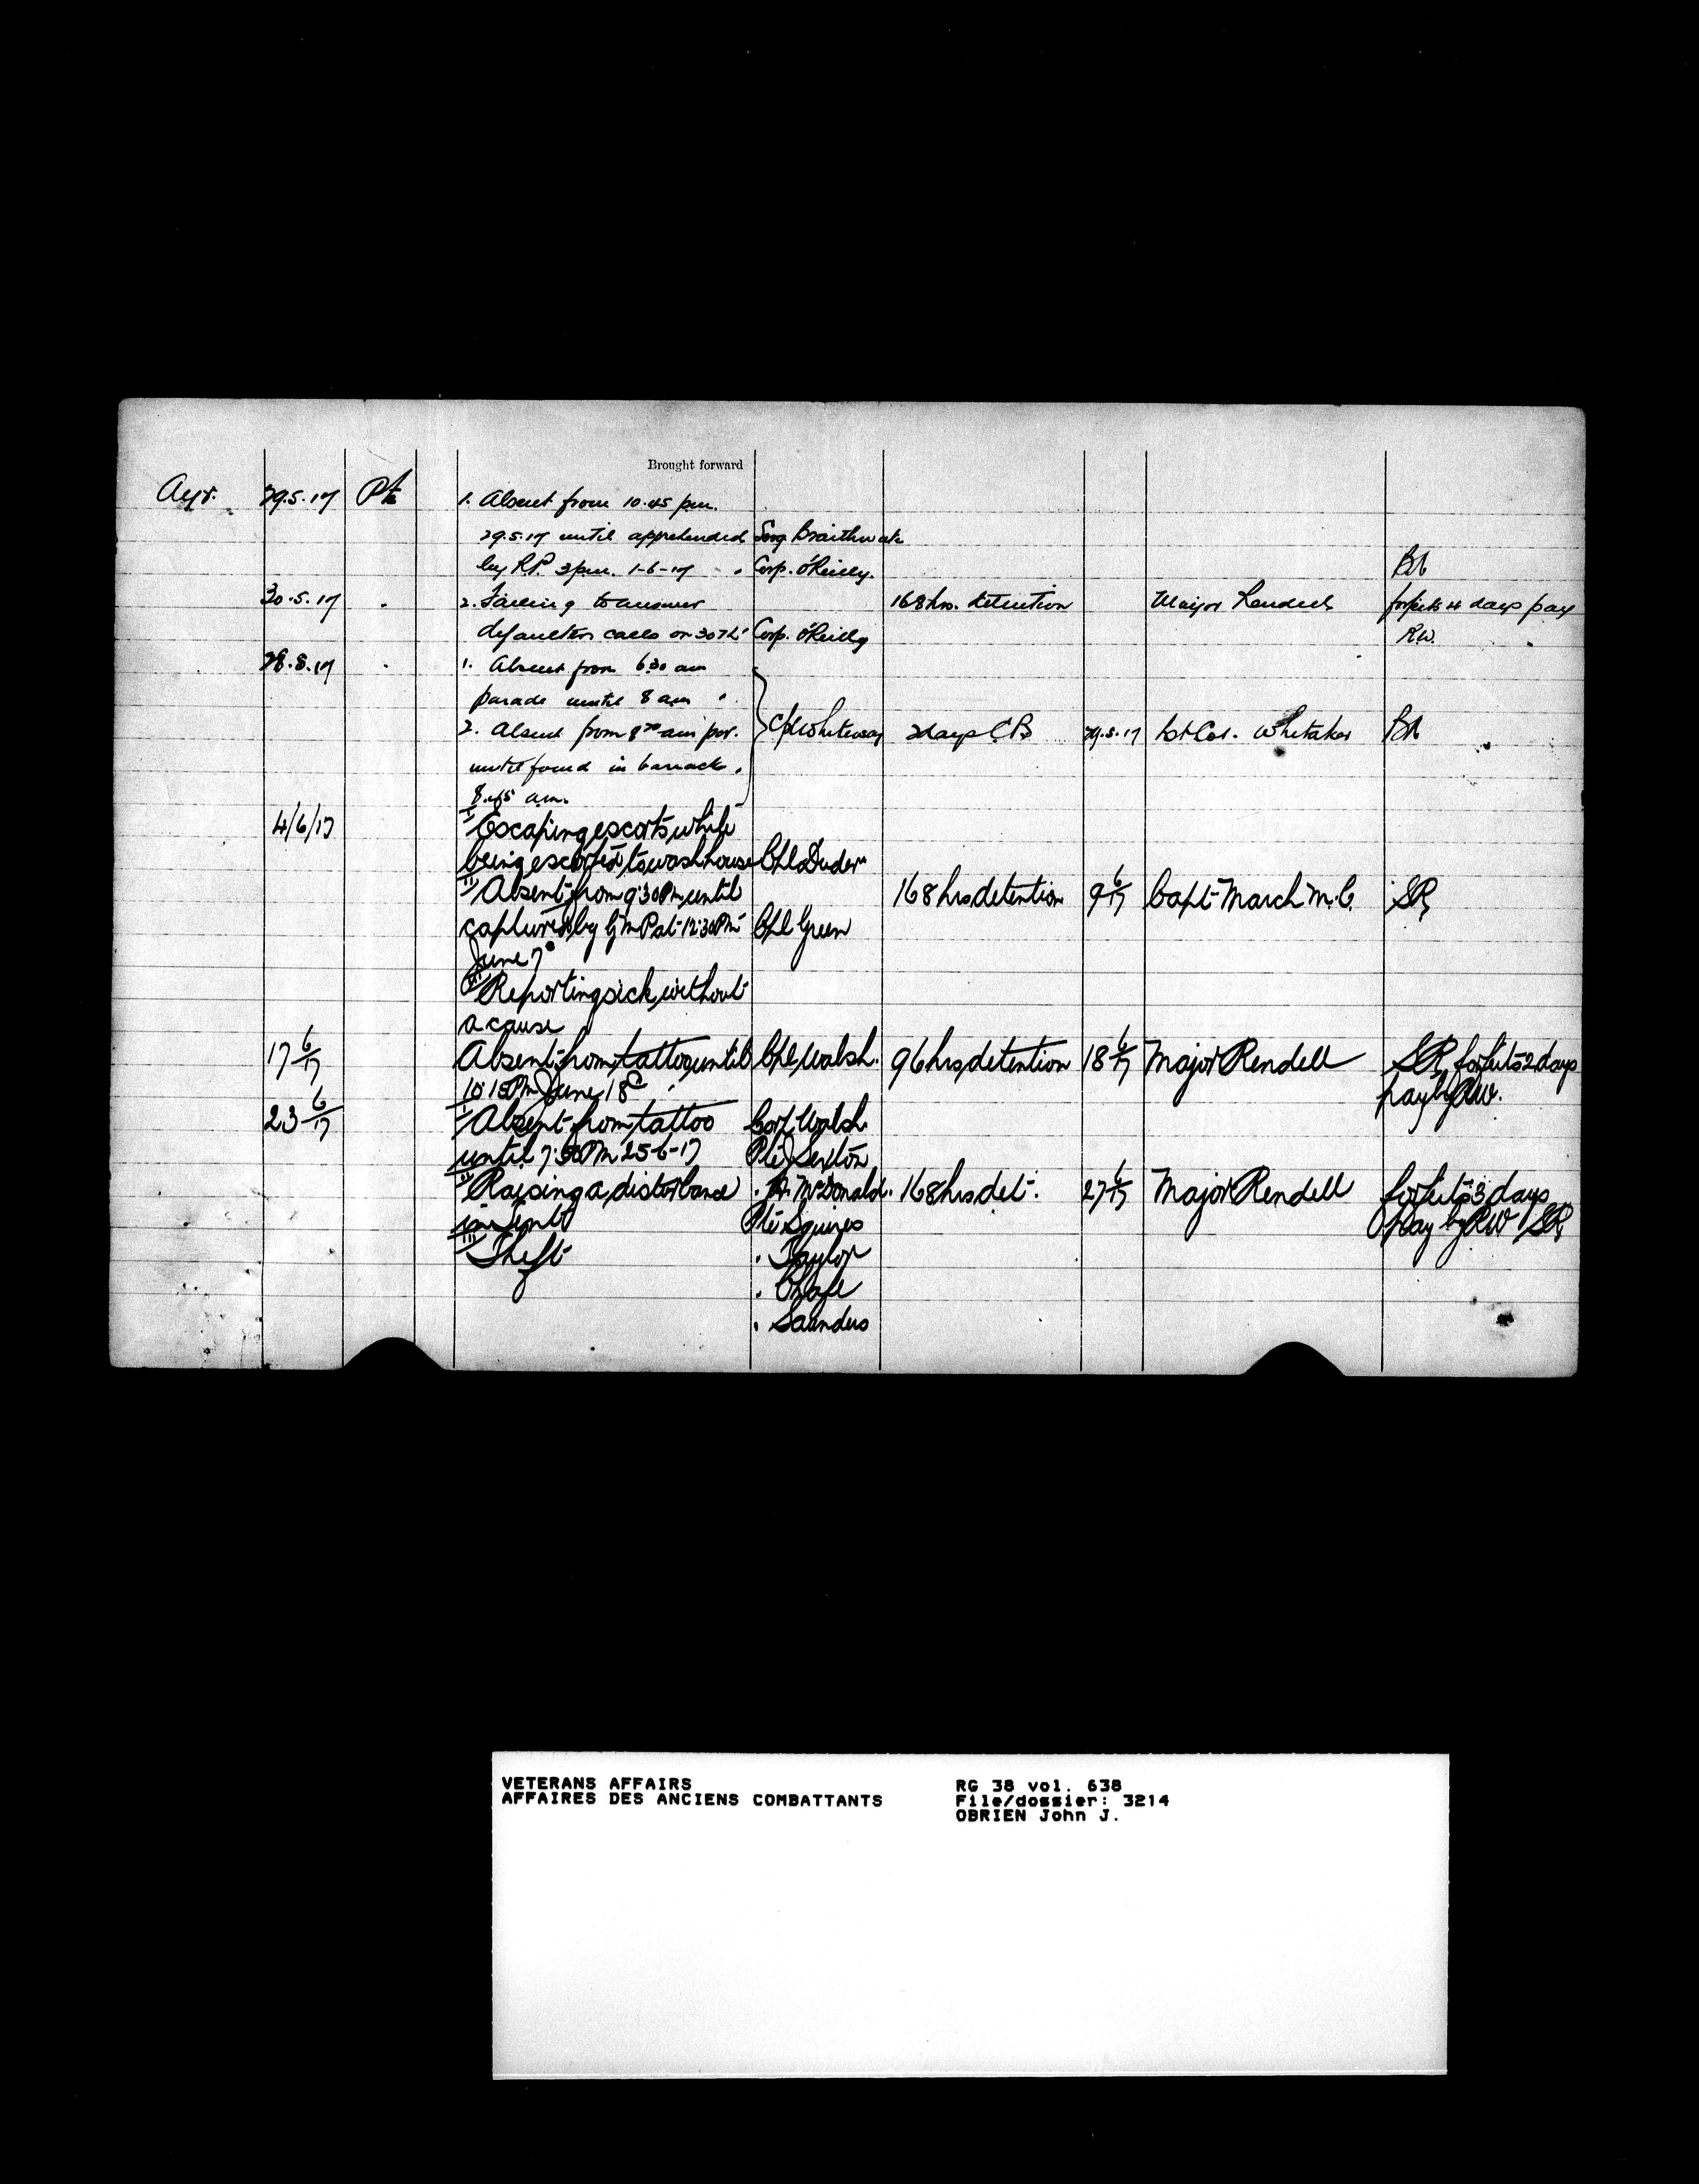 Brought forward
Ayr. 29.5.17 Pte 1. Absent from 10.45 pm.
29.5.17 until apprehended Serg Braithwate
by R.P. 3 pm. 1-6-17 Corp. O'Reilly.
30.5.17 " 2. Failing to answer 168 hrs. detention Major Rendell forfeits 4 days pay
defaulters calls on 30th Corp. O'Reilly R.W.
28.5.17 " 1. Absent from 6.30 am
parade until 8 am
2. Absent from 8 am par. Cpl Whiteway 2 days C.B 29.5.17 Lt Col. Whitaker
until found in barrack.
8.45 am.
4/6/17 I Escaping escorts while
being escorted to wash house Cpl Duder
II Absent from 9:30 Pm until 168 hrs detention 9 6/17 Capt March M.C. SR
captured by G m P at 12:30 Pm Cpl Green
June 7"
III Reporting sick without
a cause
17 6/17 Absent from tattoo until Cpl Walsh. 96 hrs detention 18 6/17 Major Rendell SR forfeits 2 days
10 15 Pm June 18" pay by RW.
23 6/17 I Absent from tattoo Corp Walsh.
until 7:50 Pm 25-6-17 Pte J Sexton
II Raising a disturbance " McDonald. 168 hrs det. 27 6/17 Major Rendell forfeits 3 days
in tent Pte Squires pay by RW SR
III Theft " Taylor
" Chafe
" Saunders
VETERANS AFFAIRS RG 38 vol. 638
AFFAIRES DES ANCIENS COMBATTANTS File/dossier: 3214
OBRIEN John J.